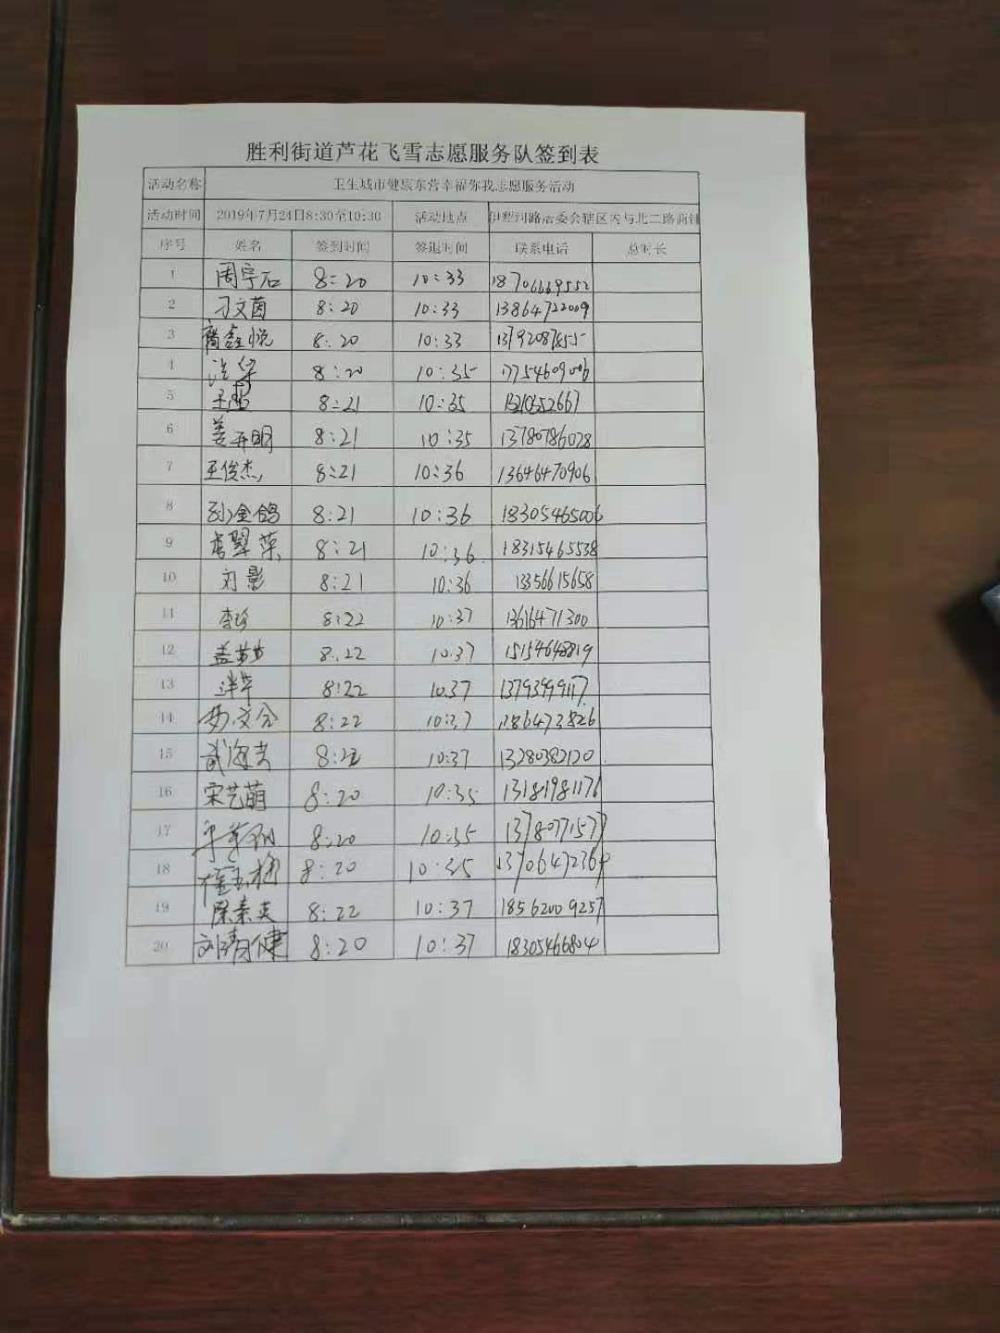 胜利街道芦花飞雪志愿服务队签到表
活动名称 卫生城市健康东营幸福你我志愿服务活动
活动时间 2019年7月24日8:30至10:30 活动地点 辖区内与北二路商铺
序号 姓名 签到时间 签退时间 联系电话 总时长
1 周宇石 8:20 10:33 18706669552
2 刁文茵 8:20 10:33 13864722009
3 鑫悦 8:20 10:33
4 8:20 10:35
5 8:21 10:35
6 姜开明 8:21 10:35 13780786028
7 王俊杰 8:21 10:36 13646470906
8 孙金鸽 8:21 10:36 18305465006
9 8:21 10:36 18315465538
10 刘影 8:21 10:36 13356615658
11 李珍 8:22 10:37 13616471300
12 孟 8:22 10:37 15154648819
13 8:22 10:37
14 8:22 10:37
15 武海 8:22 10:37 13280382120
16 宋艺萌 8:20 10:35 13181981176
17 8:20 10:35
18 8:20 10:35
19 素英 8:22 10:37 18562009257
20 刘清健 8:20 10:37